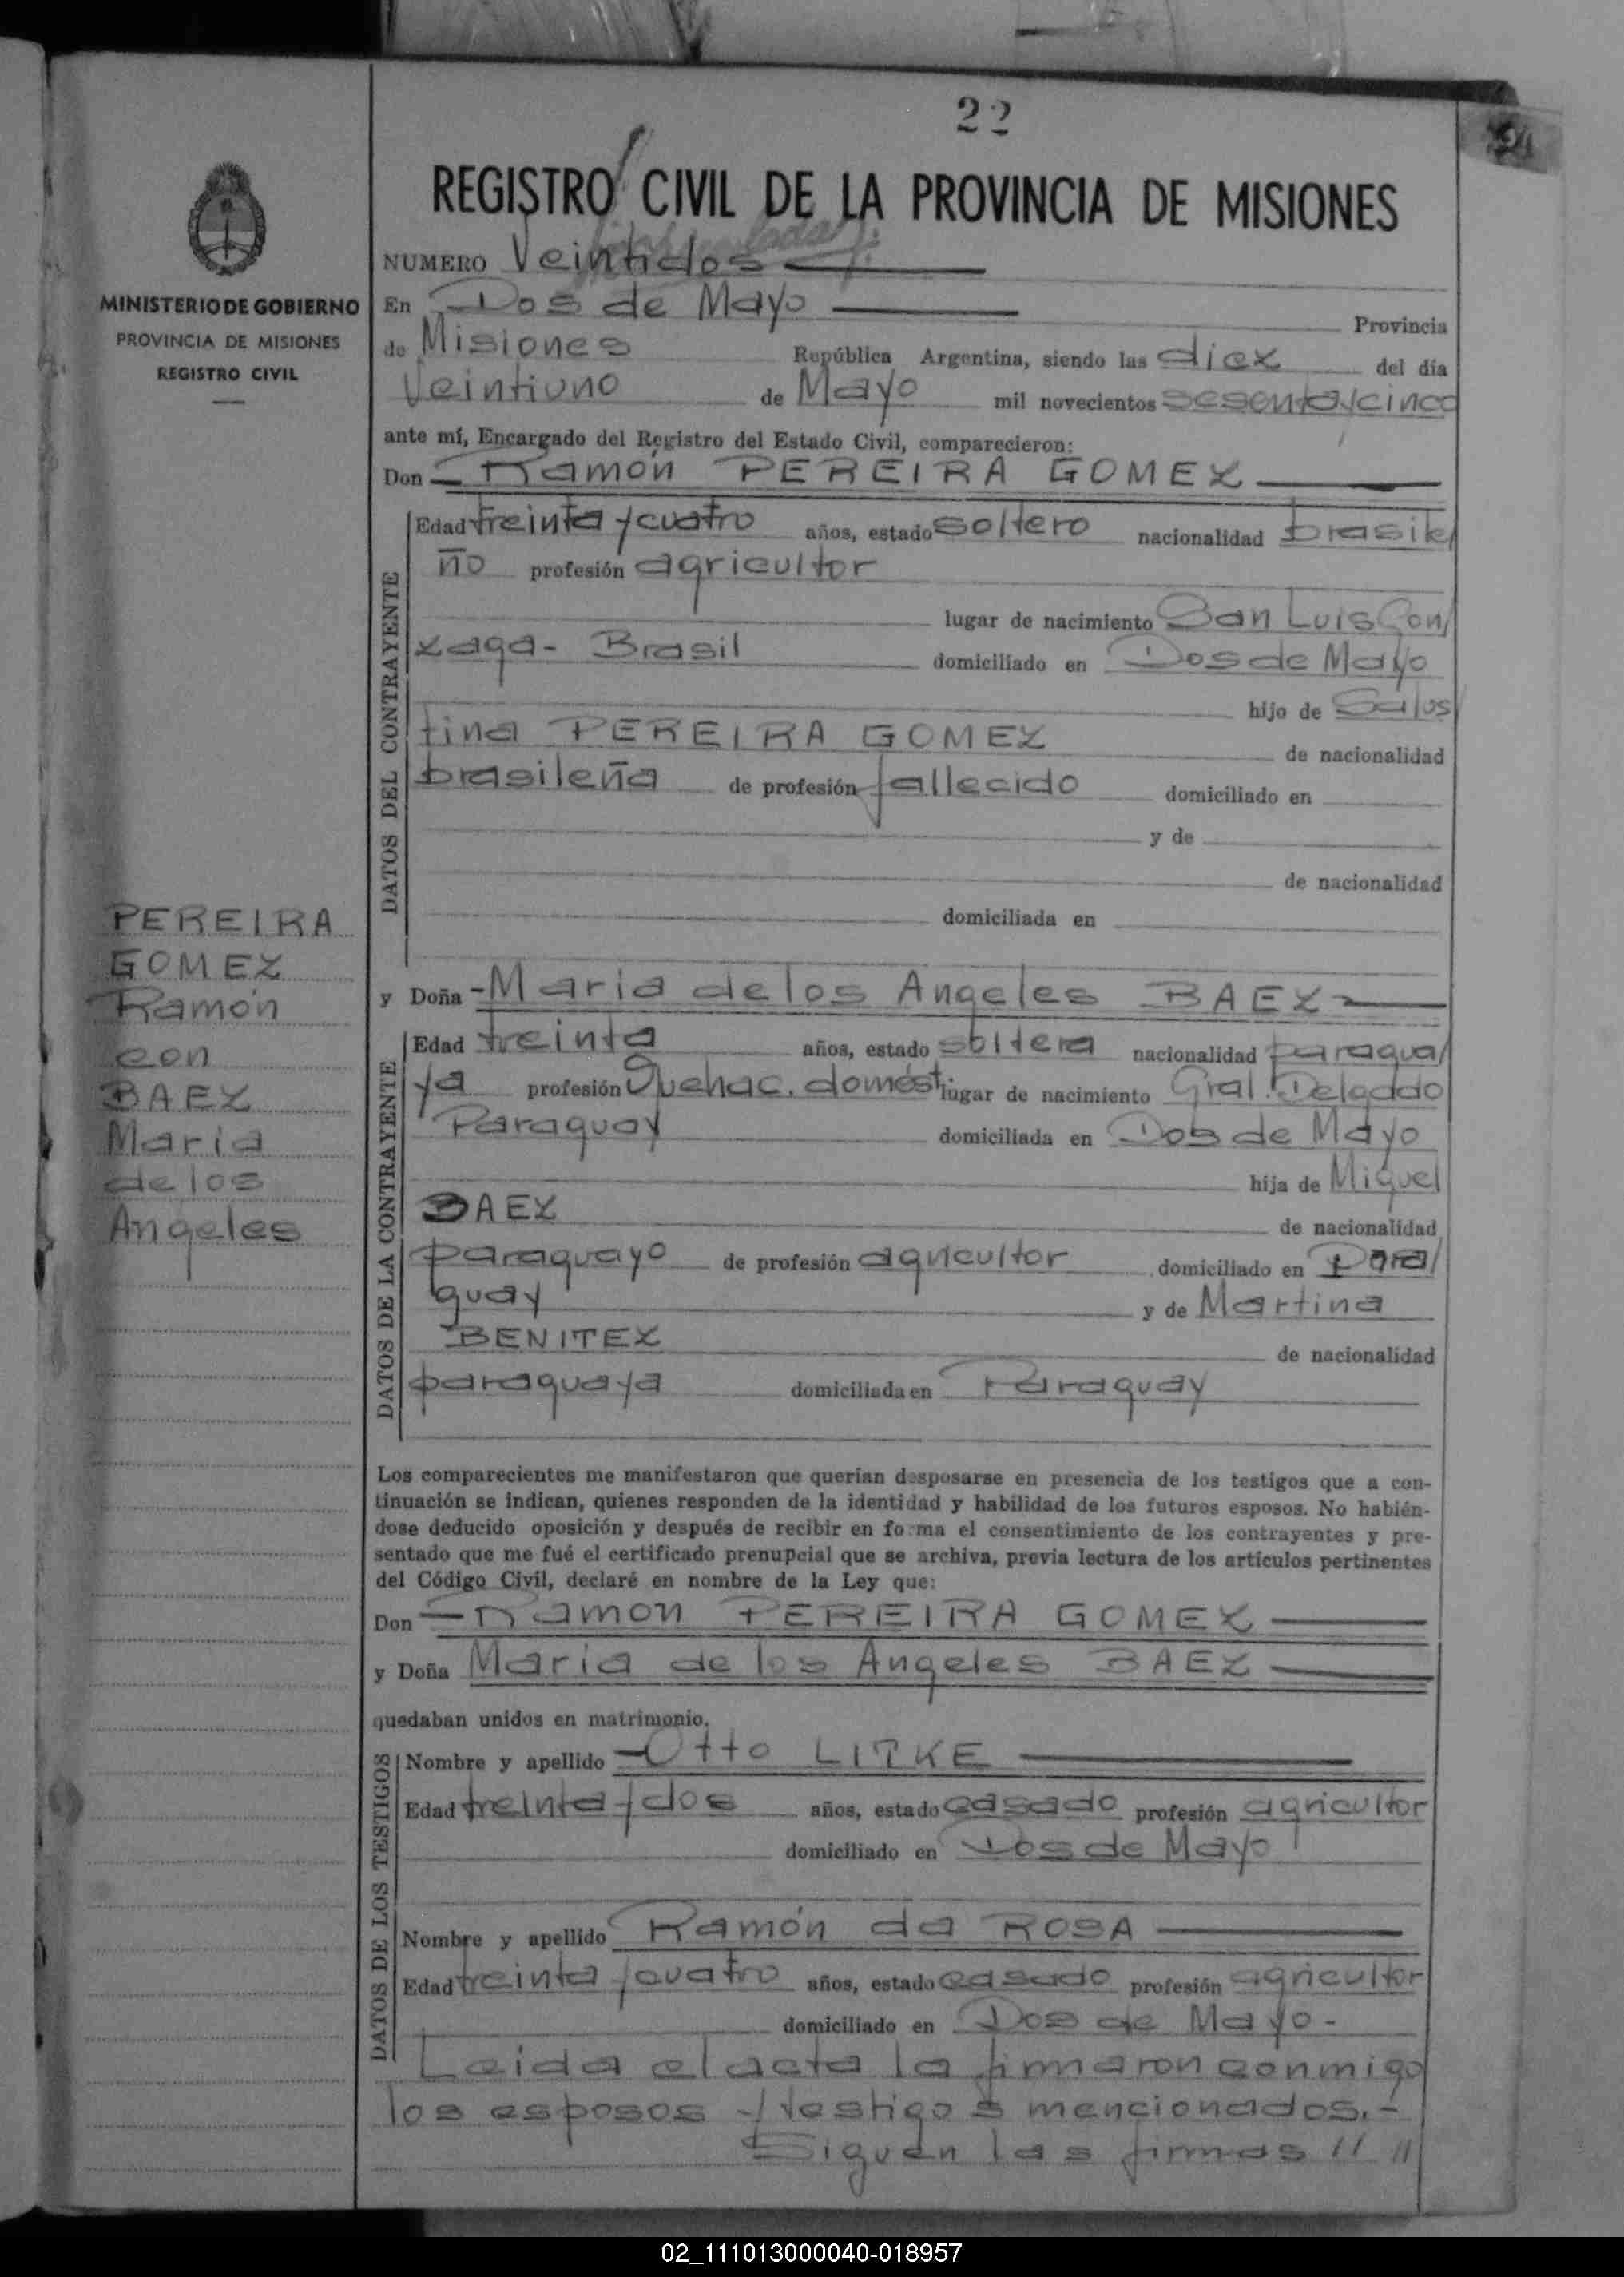 22
REGISTRO CIVIL DE LA PROVINCIA DE MISIONES
MINISTERIO DE GOBIERNO
PROVINCIA DE MISIONES
REGISTRO CIVIL
PEREIRA
GOMEZ
Ramón
con
BAEZ
Maria
de los
Angeles
NUMERO Veintidos
En Dos de Mayo Provincia
de Misiones República Argentina, siendo las diez del día
Veintiuno de Mayo mil novecientos sesenta y cinco
ante mí, Encargado del Registro del Estado Civil, comparecieron:
Don Ramón PEREIRA GOMEZ
DATOS DEL CONTRAYENTE
Edad treinta y cuatro años, estado soltero nacionalidad brasile/
ño profesión agricultor
lugar de nacimiento San Luis Gon/
zaga - Brasil domiciliado en Dos de Mayo
hijo de Salus/
tina PEREIRA GOMEZ de nacionalidad
brasileña de profesión fallecido domiciliado en
y de
de nacionalidad
domiciliada en
y Doña - Maria de los Angeles BAEZ
DATOS DE LA CONTRAYENTE
Edad treinta años, estado soltera nacionalidad paragua/
ya profesión Quehac. domést lugar de nacimiento Gral. Delgado
Paraguay domiciliada en Dos de Mayo
hija de Miguel
BAEZ de nacionalidad
paraguayo de profesión agricultor domiciliado en Para/
guay y de Martina
BENITEZ de nacionalidad
paraguaya domiciliada en Paraguay
Los comparecientes me manifestaron que querían desposarse en presencia de los testigos que a con-
tinuación se indican, quienes responden de la identidad y habilidad de los futuros esposos. No habién-
dose deducido oposición y después de recibir en forma el consentimiento de los contrayentes y pre-
sentado que me fué el certificado prenupcial que se archiva, previa lectura de los artículos pertinentes
del Código Civil, declaré en nombre de la Ley que:
Don Ramon PEREIRA GOMEZ
y Doña Maria de los Angeles BAEZ
quedaban unidos en matrimonio.
DATOS DE LOS TESTIGOS
Nombre y apellido Otto LITKE
Edad treinta y dos años, estado casado profesión agricultor
domiciliado en Dos de Mayo
Nombre y apellido Ramón da ROSA
Edad treinta y cuatro años, estado casado profesión agricultor
domiciliado en Dos de Mayo -
Leida el acta la firmaron conmigo
los esposos y testigos mencionados. -
Siguen las firmas // //
02_111013000040-018957